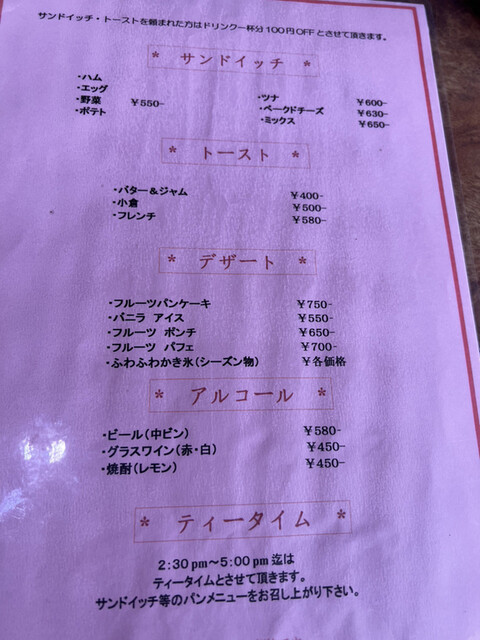 サンドイッチ・トーストを頼まれた方はドリンク一杯分100円OFFとさせて頂きます。
* サンドイッチ *
・ハム
・エッグ
・野菜 ￥550-
・ポテト
・ツナ ￥600-
・ベークドチーズ ￥630-
・ミックス ￥650-
* トースト *
・バター＆ジャム ￥400-
・小倉 ￥500-
・フレンチ ￥580-
* デザート *
・フルーツパンケーキ ￥750-
・バニラ アイス ￥550-
・フルーツ ポンチ ￥650-
・フルーツ パフェ ￥700-
・ふわふわかき氷（シーズン物） ￥各価格
* アルコール *
・ビール（中ビン） ￥580-
・グラスワイン（赤・白） ￥450-
・焼酎（レモン） ￥450-
* ティータイム *
2:30 pm～5:00 pm 迄は
ティータイムとさせて頂きます。
サンドイッチ等のパンメニューをお召し上がり下さい。